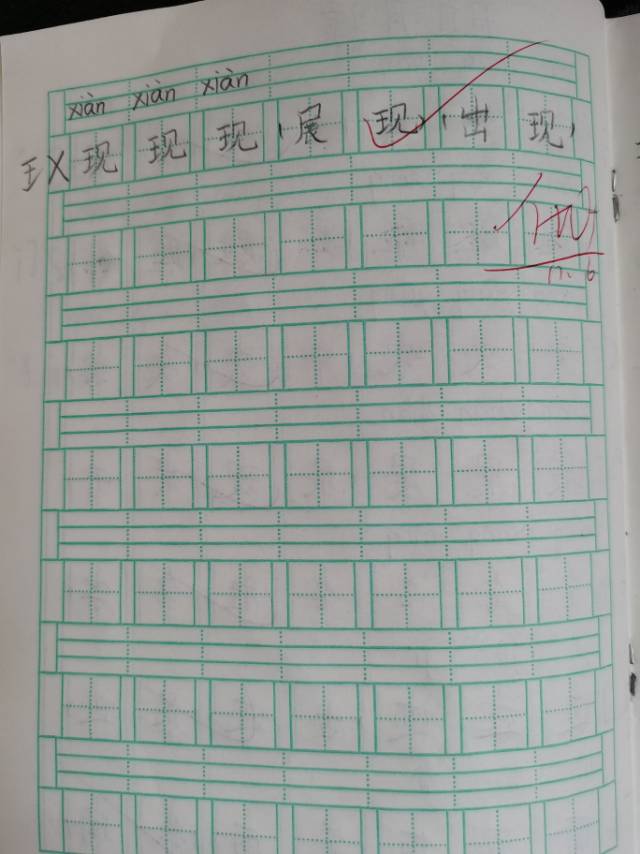 xiàn xiàn xiàn
王 X 现 现 现 展 现 出 现
11.6